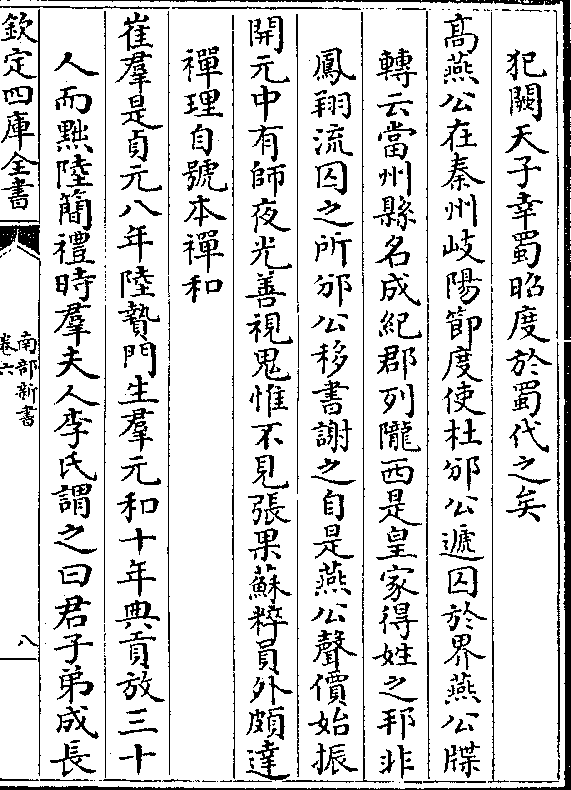 犯闕天子幸蜀昭度於蜀代之矣
髙燕公在秦州岐陽節度使杜邠公遞囚於界燕公牒
轉云當州縣名成紀郡列隴西是皇家得姓之邦非
鳳翔流囚之所邠公移書謝之自是燕公聲價始振
開元中有師夜光善視鬼惟不見張果蘇粹員外頗達
禪理自號本禪和
崔羣是貞元八年陸贄門生羣元和十年典貢放三十
人而黜陸簡禮時羣夫人李氏謂之曰君子弟成長
欽定四庫全書
南部新書
卷六
八